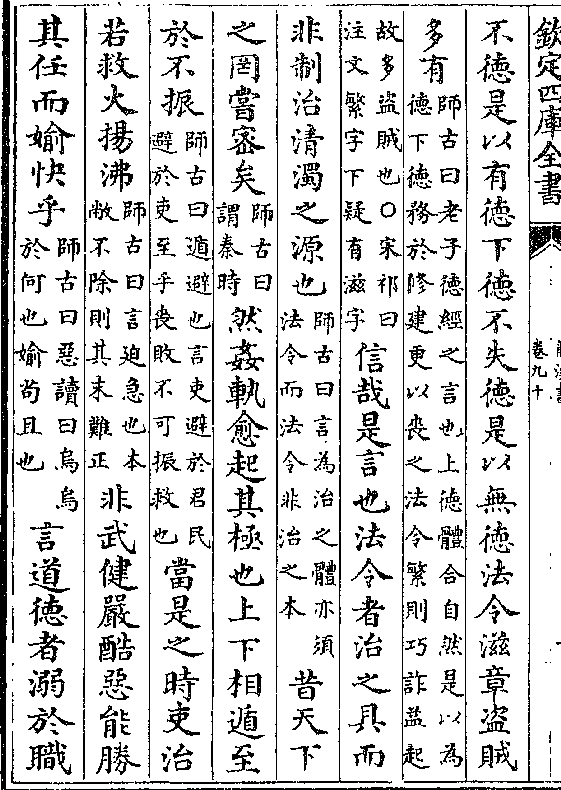 欽定四庫全書
卷九十
不徳是以有徳下徳不失徳是以無徳法令滋章盜賊
多有師古曰老子徳經之言也上徳體合自然是以為
徳下徳務於修建更以喪之法令繁則巧詐益起
故多盜賊也○宋祁曰
注文繁字下疑有滋字信哉是言也法令者治之具而
非制治清濁之源也師古曰言為治之體亦須
法令而法令非治之本昔天下
之罔嘗密矣師古曰
謂秦時然姦軌愈起其極也上下相遁至
於不振師古曰遁避也言吏避於君民
避於吏至乎喪敗不可振救也當是之時吏治
若救火揚沸師古曰言迫急也本
敝不除則其末難正非武健嚴酷惡能勝
其任而媮快乎師古曰惡讀曰烏烏
於何也媮苟且也言道徳者溺於職